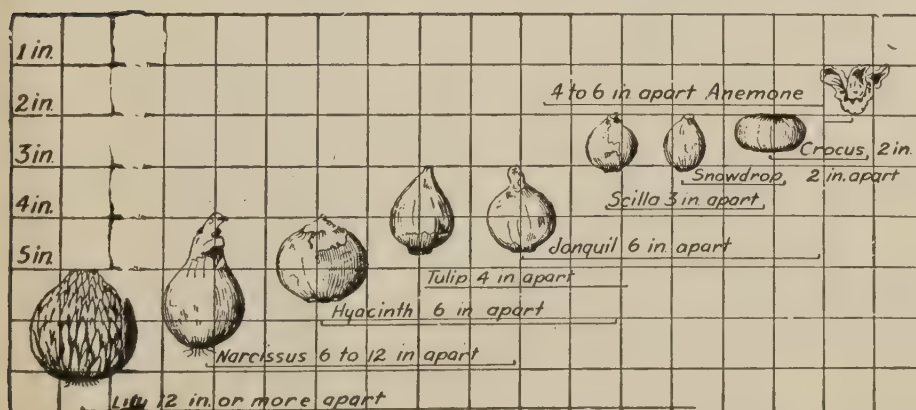 1 in.
2 in.
4 to 6 in apart Anemone
3 in.
Crocus 2 in.
Snowdrop 2 in. apart
4 in.
Scilla 3 in apart
5 in.
Jonquil 6 in apart
Tulip 4 in apart
Hyacinth 6 in apart
Narcissus 6 to 12 in apart
Lily 12 in. or more apart